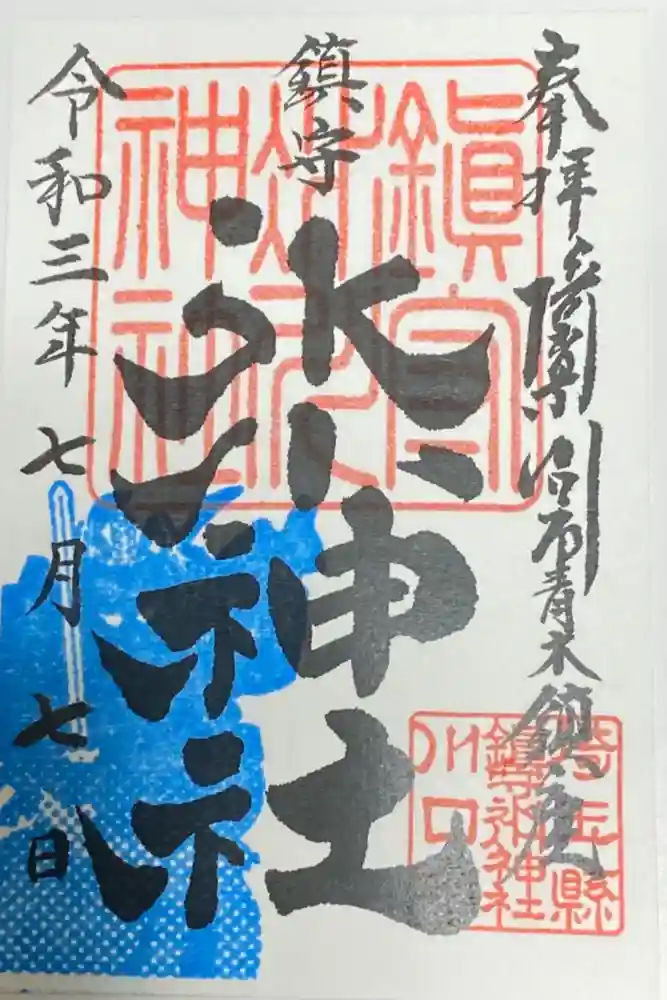 奉拝
川口市青木鎮座
鎮守
氷川神社
令和三年七月七日
鎮守
氷川
神社
埼玉縣
鎮守氷川神社
川口